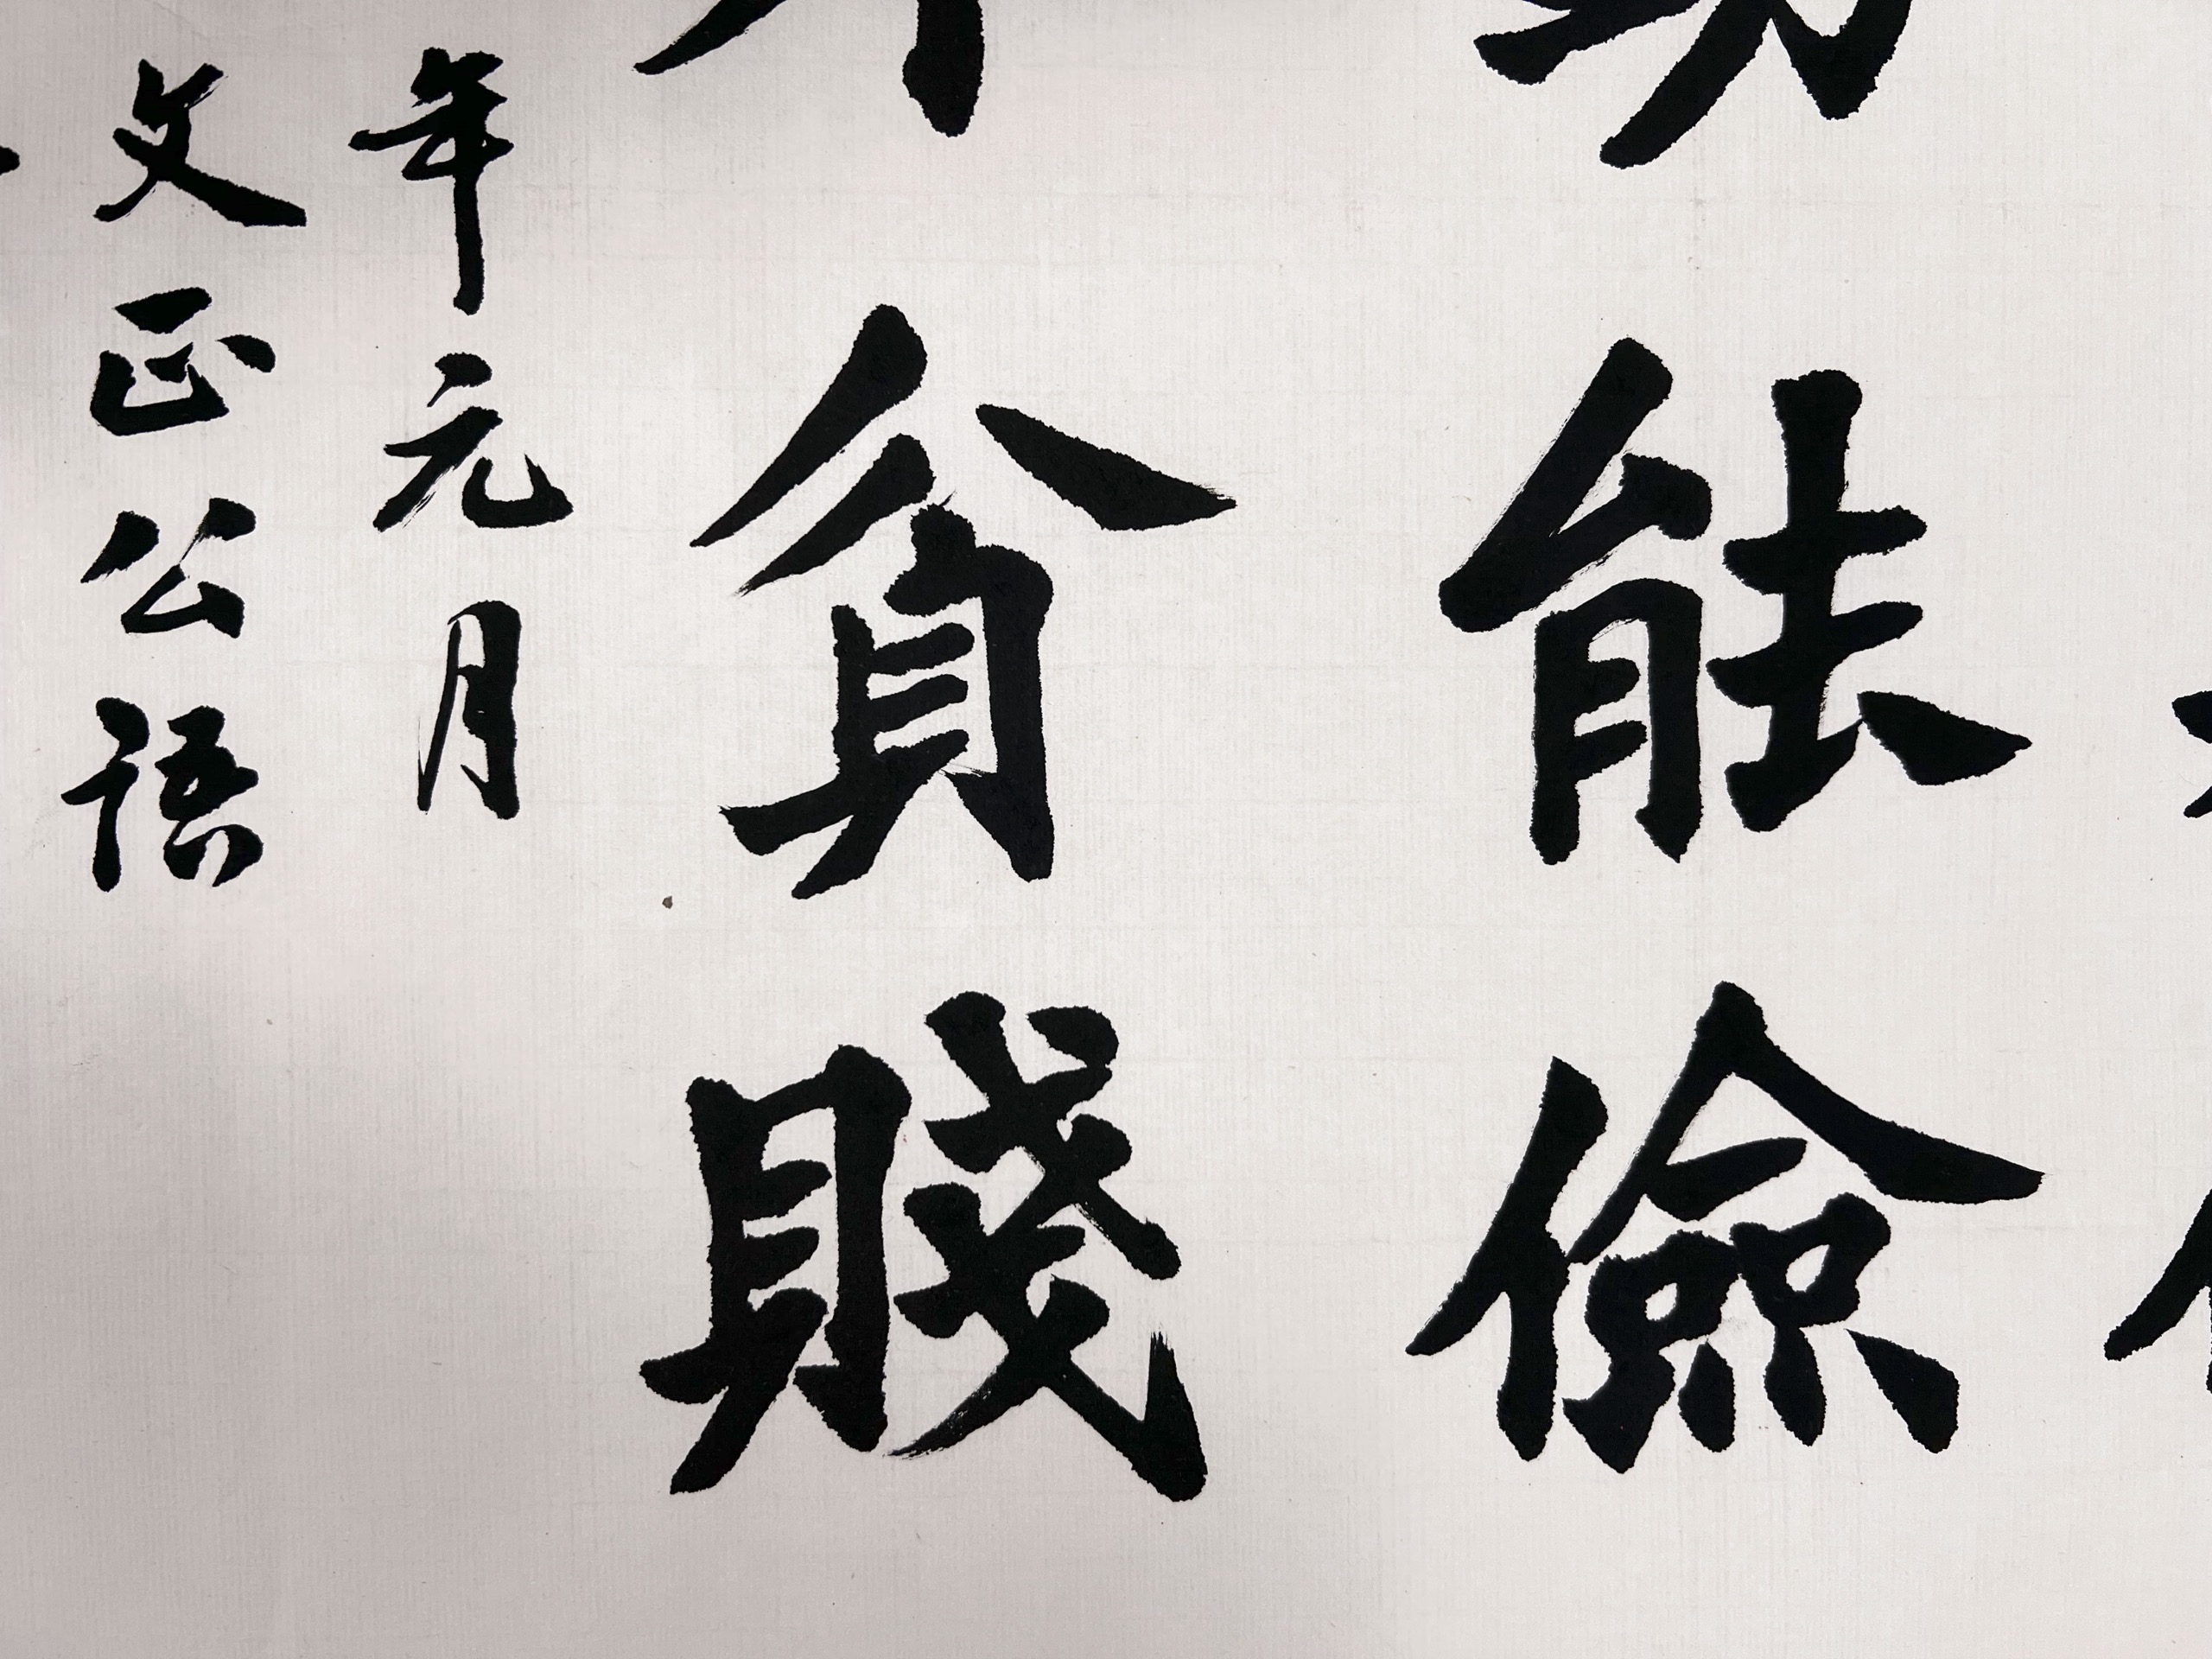 能儉
貧賤
年元月
文正公語